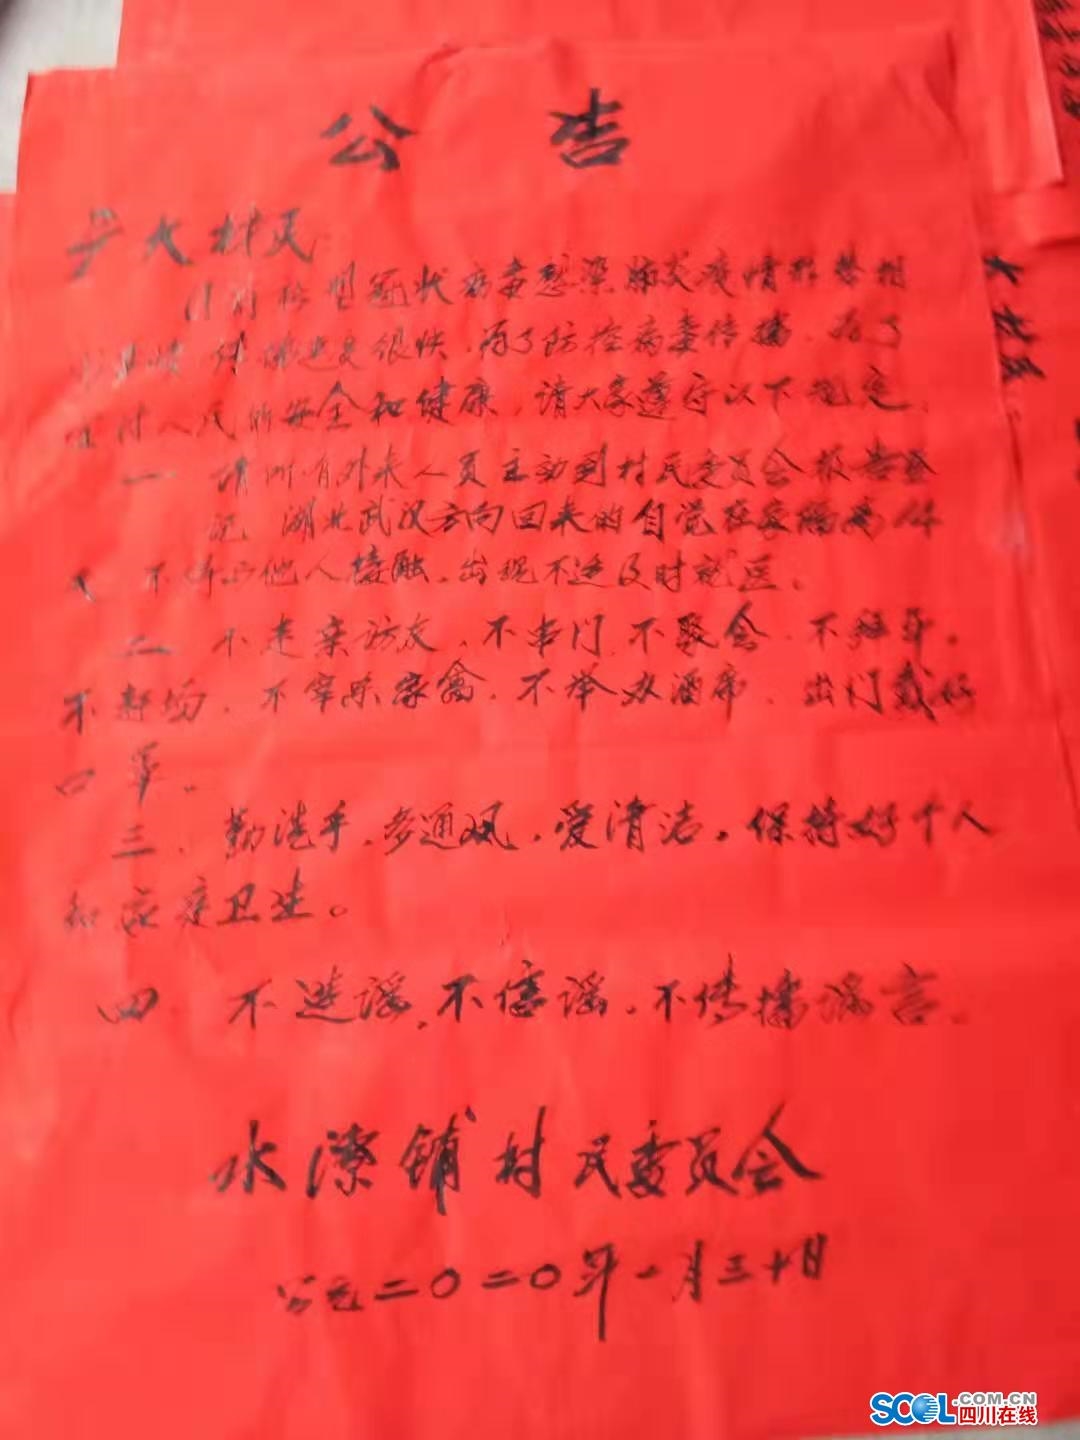 公告
广大村民
目前新型冠状病毒感染肺炎疫情形势相
当严峻 传播速度很快.为了防控病毒传播.为了
全村人民的安全和健康.请大家遵守以下规定.
一 请所有外来人员主动到村民委员会报告登
记.湖北武汉方向回来的自觉在家隔离14
天 不得与他人接触.出现不适及时就医.
二 不走亲访友.不串门.不聚会.不拜年.
不赶场.不宰杀家禽.不举办酒席.出门戴好
口罩.
三.勤洗手.多通风.爱清洁.保持好个人
和家庭卫生。
四.不造谣.不信谣.不传播谣言.
水潦铺村民委员会
公元二〇二〇年一月三十日
SCOL.COM.CN
四川在线